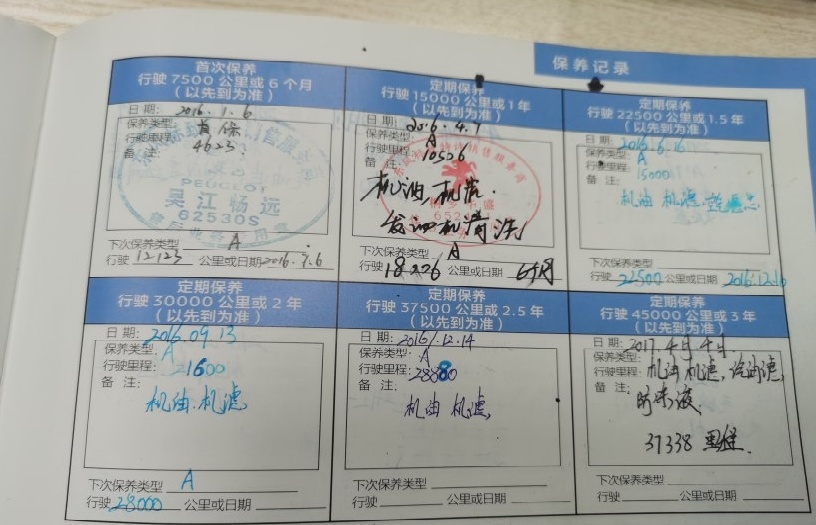 保养记录
首次保养
行驶 7500 公里或 6 个月
（以先到为准）
日 期: 2016.1.6
保养类型: 首保
行驶里程: 4623.
备 注:
PEUGEOT
吴江畅远
62530S
下次保养类型 A
行驶 12123 公里或日期 2016.7.6
定期保养
行驶 15000 公里或 1 年
（以先到为准）
日 期: 2016.4.1
保养类型: A
行驶里程: 10526
备 注:
机油,机滤.
发动机清洗
下次保养类型 A
行驶 18226 公里或日期 6个月
定期保养
行驶 22500 公里或 1.5 年
（以先到为准）
日 期: 2016.6.16
保养类型: A
行驶里程: 15000
备 注:
机油 机滤
下次保养类型
行驶 22500 公里或日期 2016.12.16
定期保养
行驶 30000 公里或 2 年
（以先到为准）
日 期: 2016.09.13
保养类型: A
行驶里程: 21600
备 注:
机油.机滤
下次保养类型 A
行驶 28000 公里或日期
定期保养
行驶 37500 公里或 2.5 年
（以先到为准）
日 期: 2016.12.14
保养类型: A
行驶里程: 28880
备 注:
机油 机滤,
下次保养类型
行驶 公里或日期
定期保养
行驶 45000 公里或 3 年
（以先到为准）
日 期: 2017.4月4号
保养类型:
行驶里程: 机油 机滤,汽油滤,
备 注: 防冻液
37338
下次保养类型
行驶 公里或日期